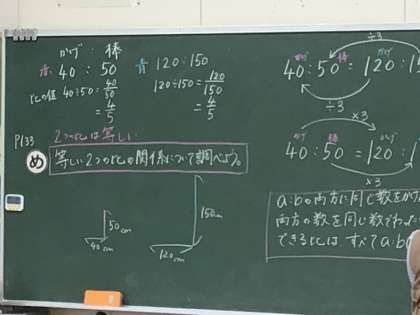 かげ : 棒
赤 40 : 50
比の値 40÷50=40/50
=4/5
青 120:150
120÷150=120/150
=4/5
P133
2つの比は等しい
め 等しい2つの比の関係について調べよう。
50cm
40cm
150cm
120cm
÷3
かげ 棒 かげ
40:50=120:1
÷3
×3
かげ 棒 かげ
40:50=120:1
×3
a:bの両方に同じ数をかけ
両方の数を同じ数でわった
できる比は すべてa:b